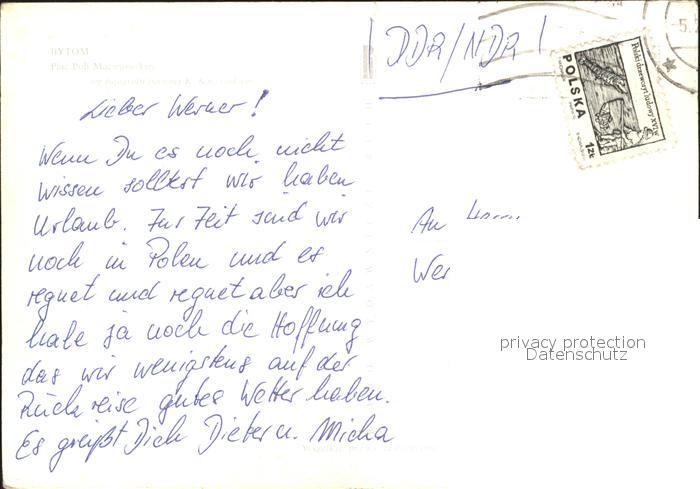 BYTOM
DDR/NDR!
5.
POLSKA
1 ZŁ
Polski drzeworyt ludowy XVI w.
Lieber Werner!
Wenn Du es noch nicht
wissen solltest wir haben
Urlaub. Zur Zeit sind wir
noch in Polen und es
regnet und regnet aber ich
habe ja noch die Hoffnung
das wir wenigstens auf der
Rückreise gutes Wetter haben.
Es grüßt Dich Dieter u. Micha
An
Wer
privacy protection
Datenschutz